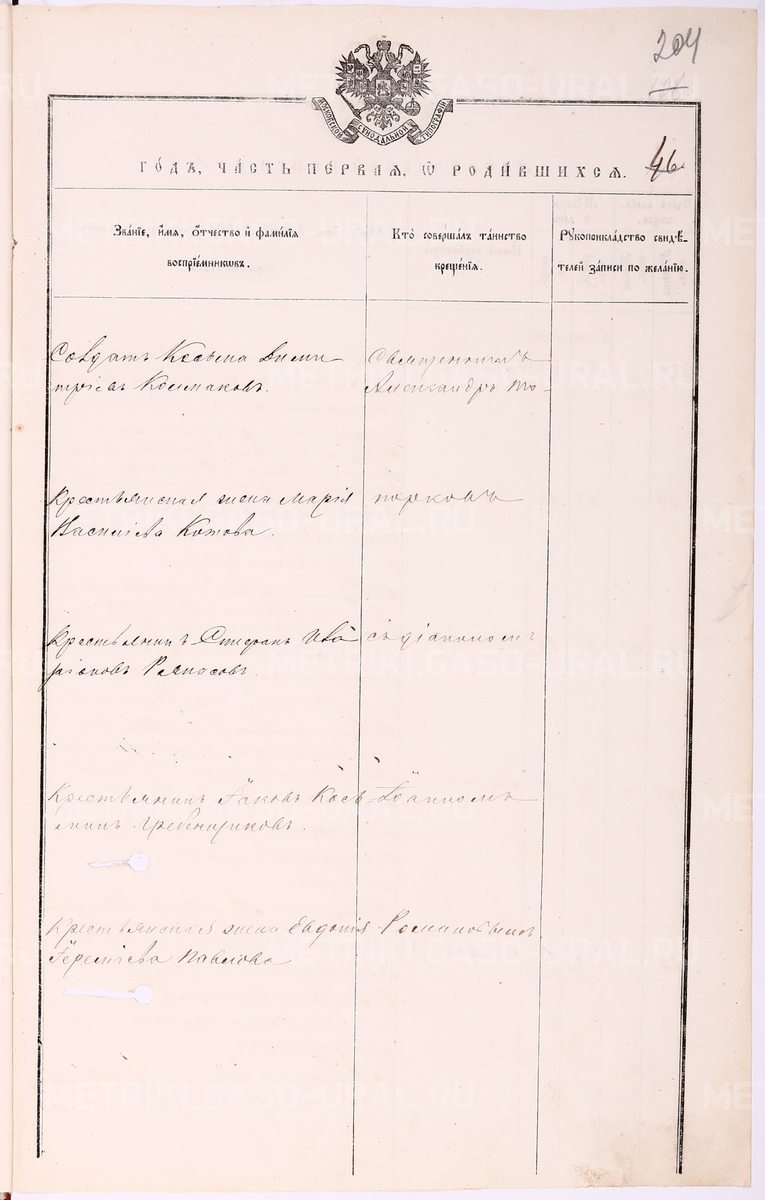 204
МОСКОВСКОЙ СѴНОДАЛЬНОЙ ТИПОГРАФІИ
ГО́ДЪ, ЧА́СТЬ ПЕ́РВАЯ, Ѽ РОДИ́ВШИХСЯ.
46
Зва́нїе, и́мѧ, ѻ́тчество и҆ фами́лїѧ
воспрїе́мникѡвъ.
Кто̀ соверша́лъ та́инство
креще́нїѧ.
Рꙋкоприкла́дство свидѣ́-
телей за́писи по жела́нїю.
Солдатъ Козьма Дими
тріевъ Колмаковъ.
Священникъ
Александръ То-
Крестьянская жена Марія
Васильева Котова.
порковъ
Крестьянинъ Стефанъ Ила
ріоновъ
съ діакономъ
Крестьянинъ Іаковъ Козь
минъ Гребенщиковъ.
Іоанномъ
Крестьянская жена Евдокія
Іереміева Павлова
Романовымъ
METRIKI.GASO-URAL.RU